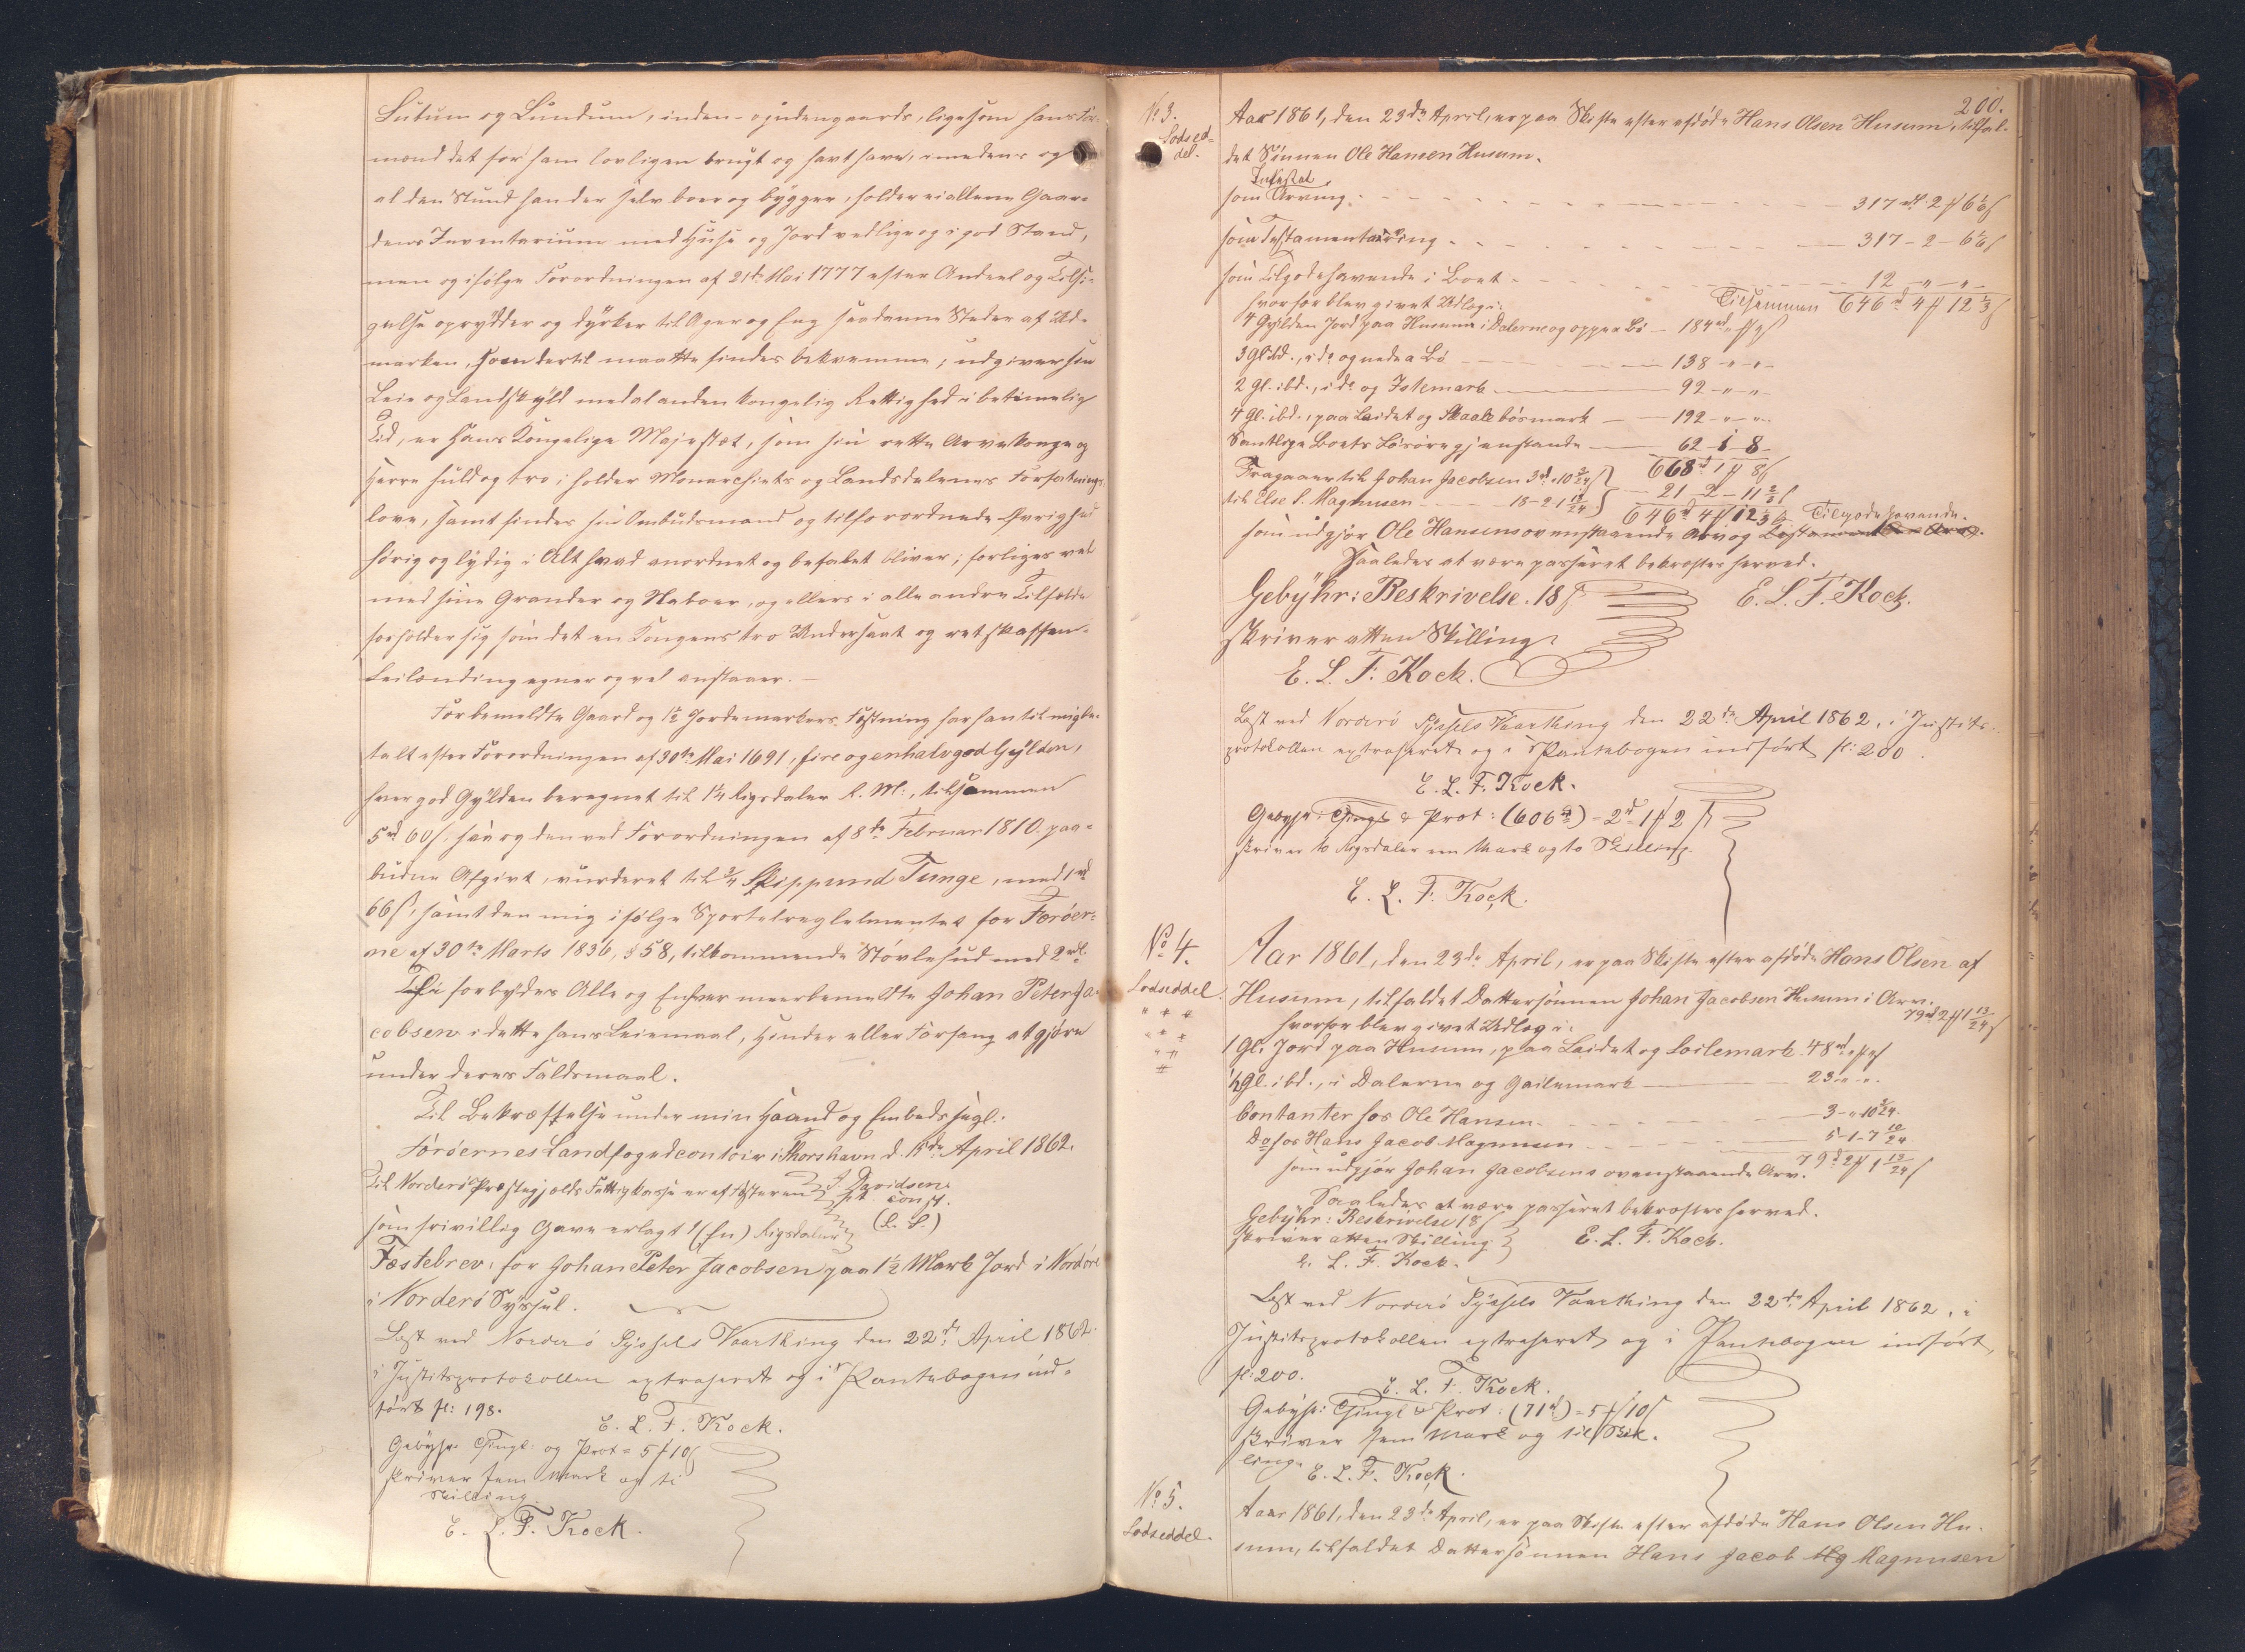 Lutum og Lundum, inden- og udengaards, ligesom hans For-
mænd det før ham lovligen brugt og havt have, imedens og
al den Stund han der selv boer og bygger, holder ei allene Gaar-
dens Inventarium med Huse og Jord vedlige og i god Stand,
men og ifølge Forordningen af 21de Mai 1777 efter Andeel og Tilsi-
gelse oprydder og dyrker til Ager og Eng saadanne Steder af Ud-
marken, som dertil maatte findes bekvemme; udgiver sin
Leie og Landskyld med al anden kongelig Rettighed i betimelig
Tid, er Hans Kongelige Majestæt, som sin rette Arvekonge og
Herre huld og tro; holder Monarchiets og Landsdelenes Forfatnings-
love, samt findes sin Ombudsmand og tilforordnede Øvrighed
hørig og lydig i Alt hvad anordnet og befalet bliver; forliges vel
med sine Grander og Naboer, og ellers i alle andre Tilfælde
forholder sig som det en Kongens tro Undersaat og retskaffen
Leilænding egner og vel anstaaer. —
Forbemeldte Gaard og 1½ Jordemarkers Fæstning har han til mig be-
talt efter Forordningen af 30te Mai 1691, fire og enhalv god Gylden,
hver god Gylden beregnet til 1¼ Rigsdaler R. M., tilsammen
5rd 60ſ, saa og den ved Forordningen af 8de Februar 1810 paa-
budne Afgivt, vurderet til ¾ Skippund Tunge, med 1rd
66ſ, samt den mig ifølge Sportelreglementet for Færøer-
ne af 30te Marts 1836, § 58, tilkommende Støvlehud med 2rdl.
Thi forbydes Alle og Enhver meerbemeldte Johan Peter Ja-
cobsen i dette hans Leiemaal, Hinder eller Forfang at gjøre
under deres Faldsmaal.
Til Bekræftelse under min Haand og Embedssegl.
Færøernes Landfogedcontoir i Thorshavn d. 15de April 1862.
Til Norderø Præstegjælds Fattigkasse er af Fæsteren J. Davidsen
const.
som frivillig Gave erlagt 1 (Een) Rigsdaler (L. S.)
Fæstebrev for Johan Peter Jacobsen paa 1½ Mark Jord i
i Norderø Syssel.
Læst ved Norderø Syssels Vaarthing den 22de April 1862.
i Justitsprotokollen extraheret og i Pantebogen ind-
ført fl: 198.
E. L. F. Kock.
Gebyhr Thingl: og Prot = 5 ₰ 10ſ
skriver fem Mark og ti
Skilling.
E. L. F. Kock.
200.
No 3.
Lodsed-
del.
Aar 1861, den 23de April, er paa Skifte efter afdøde Hans Olsen Husum, tilfal-
det Sønnen Ole Hansen Husum.
Intestat
som Arving - 317rd 2 ₰ 6⅙ſ
som Testamentarving - 317 - 2 - 6⅙ſ
som Tilgodehavende i Boet - 12 - " - "
Tilsammen 646rd 4 ₰ 12⅓ſ
hvorfor blev givet Udlæg i:
4 Gylden Jord paa Husum i Dalerne og oppea Bø - 184rd " ₰ " ſ
3 Gl. ibd., i do og nedea Bø - 138 - " - "
2 gl. ibd., i do og Istemark - 92 - " - "
4 gl. ibd., paa Leidet og Skaalebøsmark - 192 - " - "
Samtlige Boets Løsøregjenstande - 62 - 1 - 8
668rd 1 ₰ 8ſ
Fragaaer til Johan Jacobsen 3rd " 10 3/24ſ
til Else S. Magnusen - 18 - 2 - 1 13/24 21 - 2 - 11⅔ſ
646rd 4 ₰ 12⅓ſ Tilgodehavende.
som udgjør Ole Hansens ovenstaaende Arv og
Saaledes at være passeret bekræftes herved.
Gebyhr: Beskrivelse. 18ſ E. L. F. Kock.
skriver atten Skilling.
E. L. F. Kock.
Læst ved Norderø Syssels Vaarthing den 22de April 1862, i Justits-
protokollen extraheret og i Pantebogen indført fl: 200.
E. L. F. Kock.
Gebyhr: Thingl & Prot: (606rd) = 2rd 1 ₰ 2ſ
skriver to Rigsdaler een Mark og to Skilling.
E. L. F. Kock.
No 4.
Lodseddel.
Aar 1861, den 23de April, er paa Skifte efter afdøde Hans Olsen af
Husum, tilfaldet Dattersønnen Johan Jacobsen Husum i Arv.
79rd 2 ₰ 1 13/24ſ
hvorfor blev givet Udlæg i:
1 Gl. Jord paa Husum, paa Leidet og Loilemark. 48rd " ₰ " ſ
½ gl. ibd., i Dalerne og Gailemark - 23 - " - "
Contanter hos Ole Hansen - 3 - " - 10 3/24
Do hos Hans Jacob Magnusen - 5 - 1 - 7 10/24
79rd 2 ₰ 1 13/24ſ
som udgjør Johan Jacobsens ovenstaaende Arv.
Saaledes at være passeret bekræftes herved.
Gebyhr: Beskrivelse 18ſ
skriver atten Skilling. E. L. F. Kock.
E. L. F. Kock.
Læst ved Norderø Syssels Vaarthing den 22de April 1862, i
Justitsprotokollen extraheret og i Pantebogen indført,
fl: 200.
E. L. F. Kock.
Gebyhr: Thingl & Prot: (71rd) = 5 ₰ 10ſ
skriver fem Mark og ti Skil-
ling.
E. L. F. Kock.
No 5.
Lodseddel.
Aar 1861, den 23de April, er paa Skifte efter afdøde Hans Olsen Hu-
sum, tilfaldet Dattersønnen Hans Jacob Magnusen